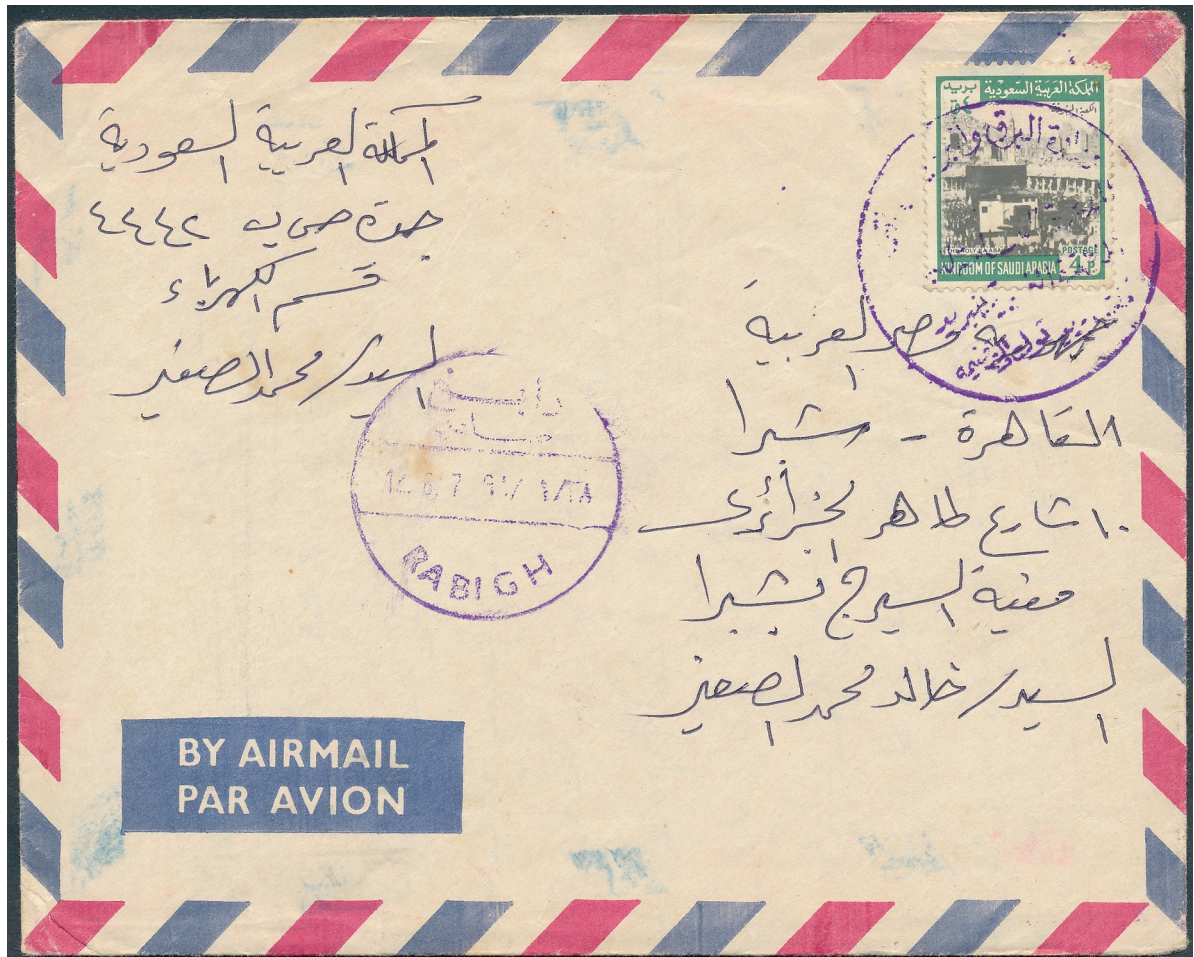 المملكة العربية السعودية
جدة ص ب ٤٤٤٢
قسم الكهرباء
السيد/ محمد الصغير
المملكة العربية السعودية
بريد
KINGDOM OF SAUDI ARABIA
POSTAGE
4 P
رابغ
صادر
RABIGH
جمهورية مصر العربية
القاهرة - شبرا
١٠ شارع طاهر الجزائرى
منية السيرج بشبرا
السيد/ خالد محمد الصغير
BY AIRMAIL
PAR AVION